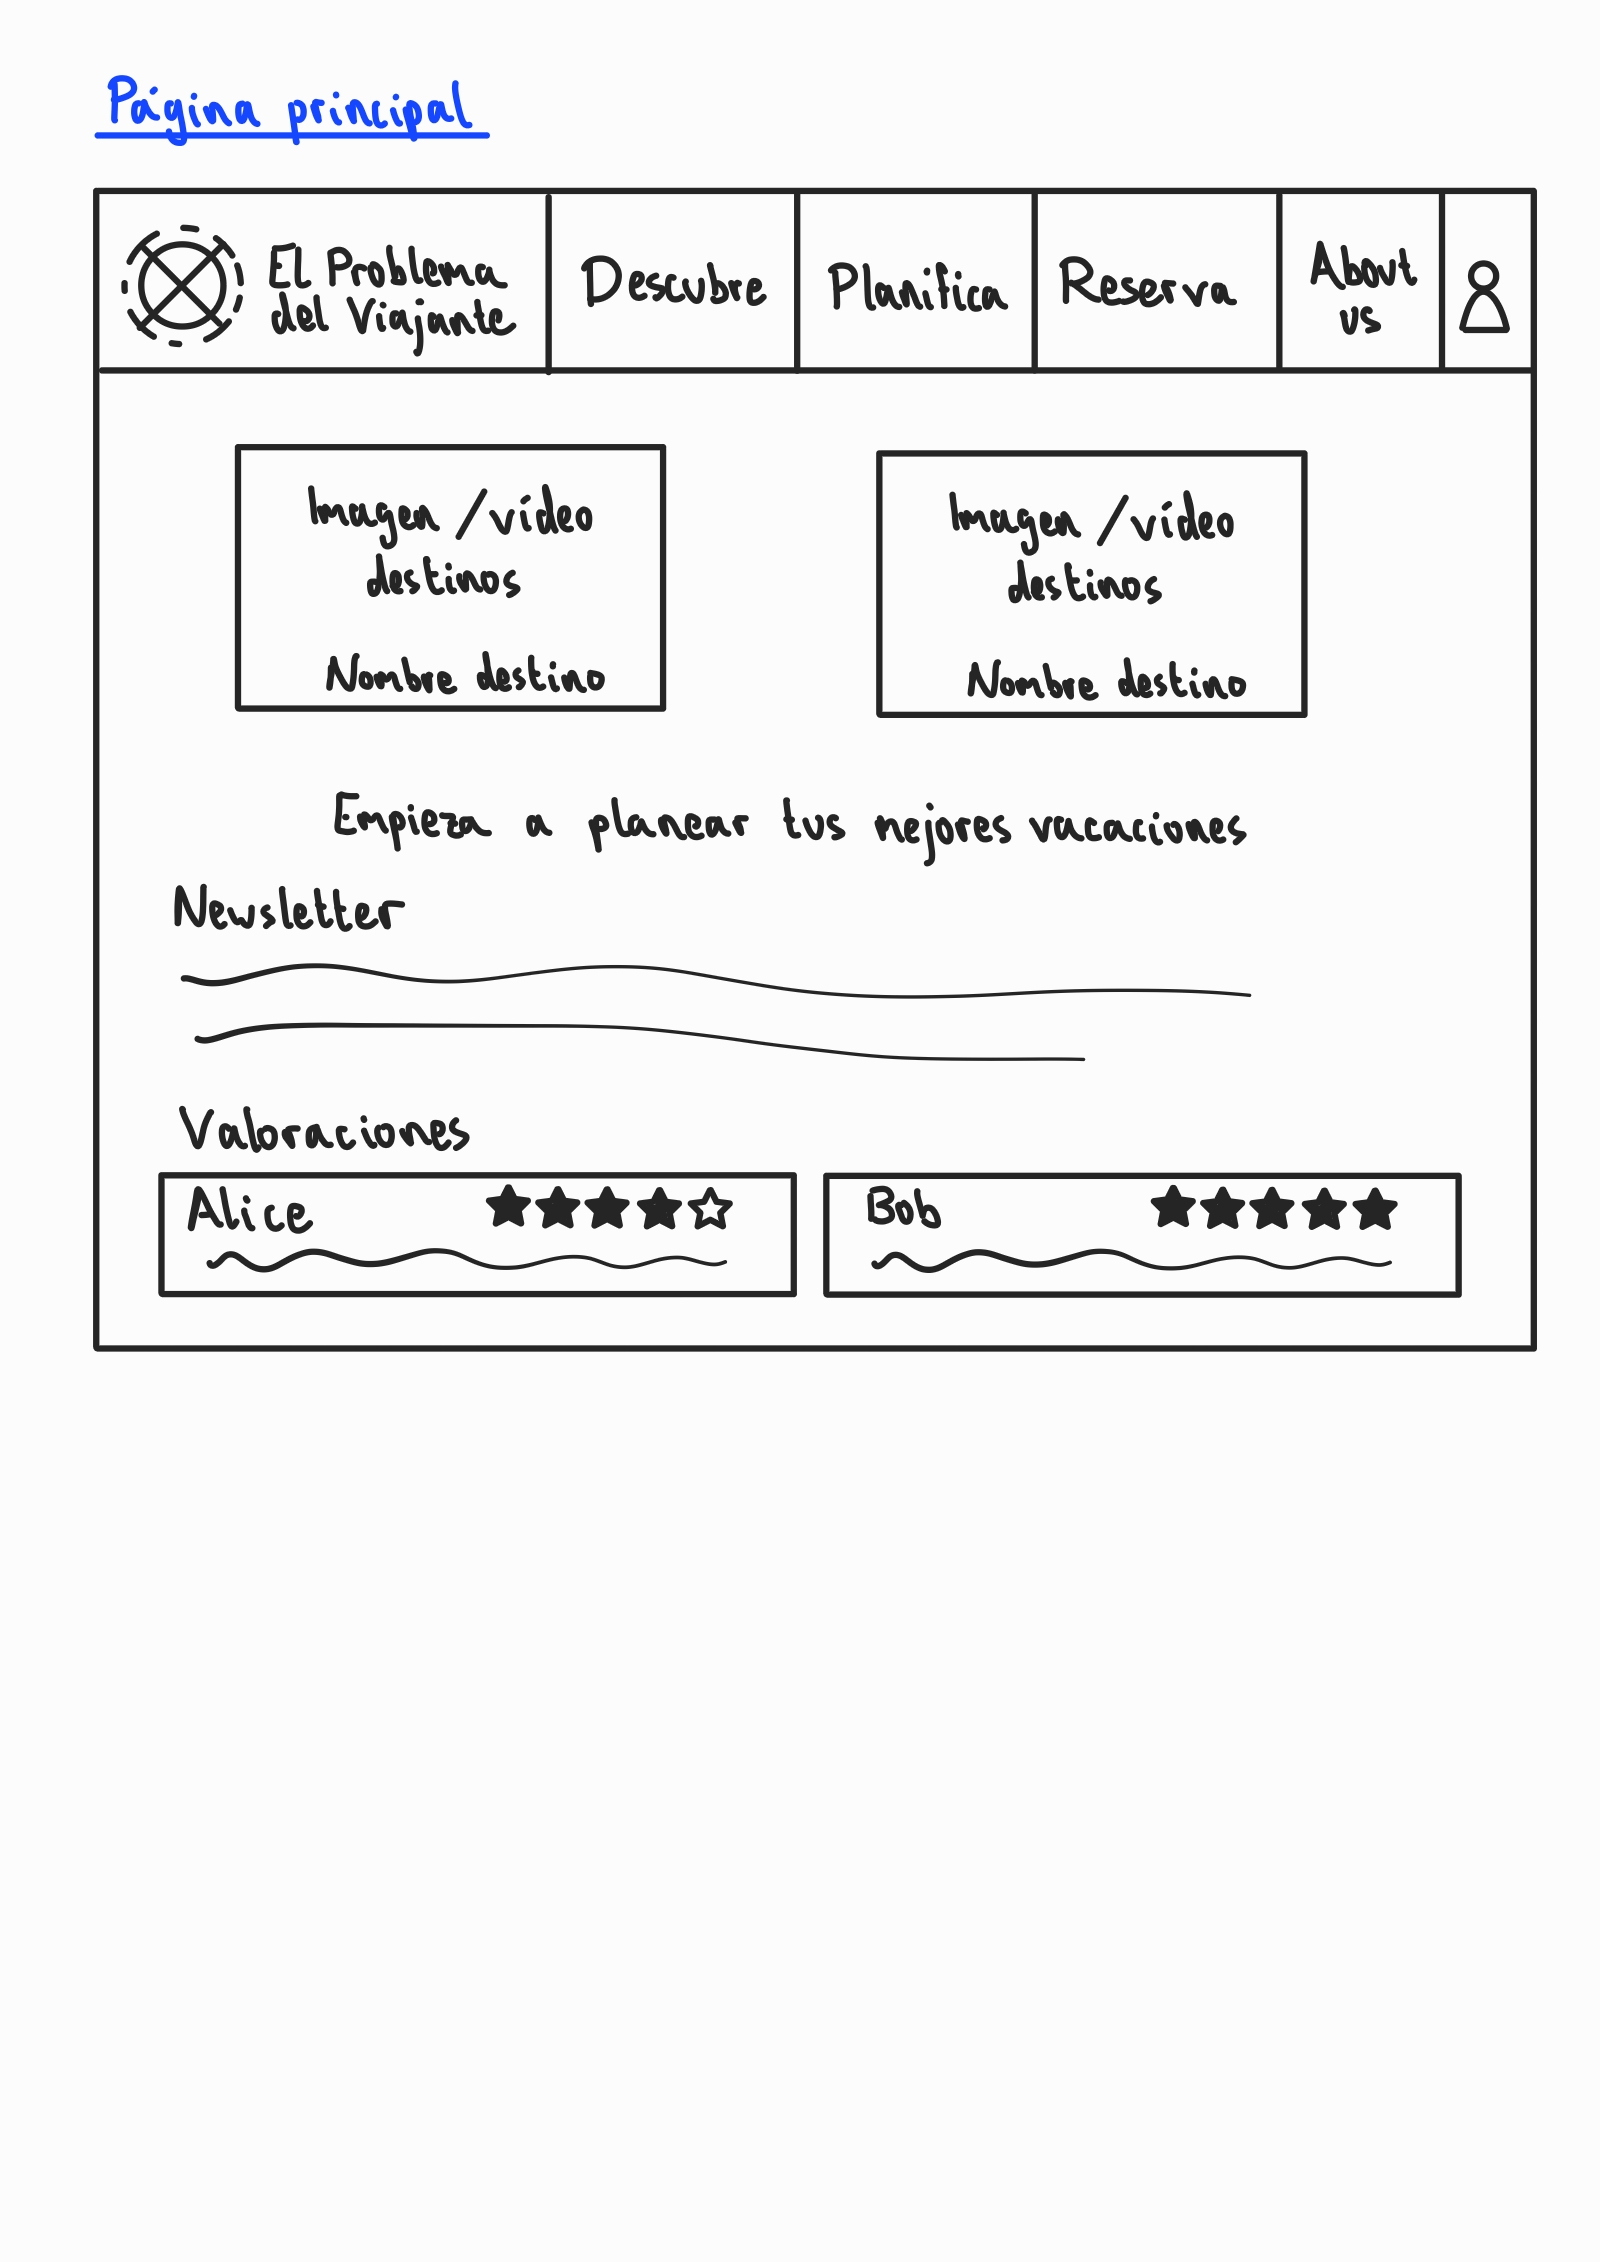 Página principal
El Problema
del Viajante
Descubre
Planifica
Reserva
About
us
Imagen / vídeo
destinos
Nombre destino
Imagen / vídeo
destinos
Nombre destino
Empieza a planear tus mejores vacaciones
Newsletter
Valoraciones
Alice ★★★★☆
Bob ★★★★★